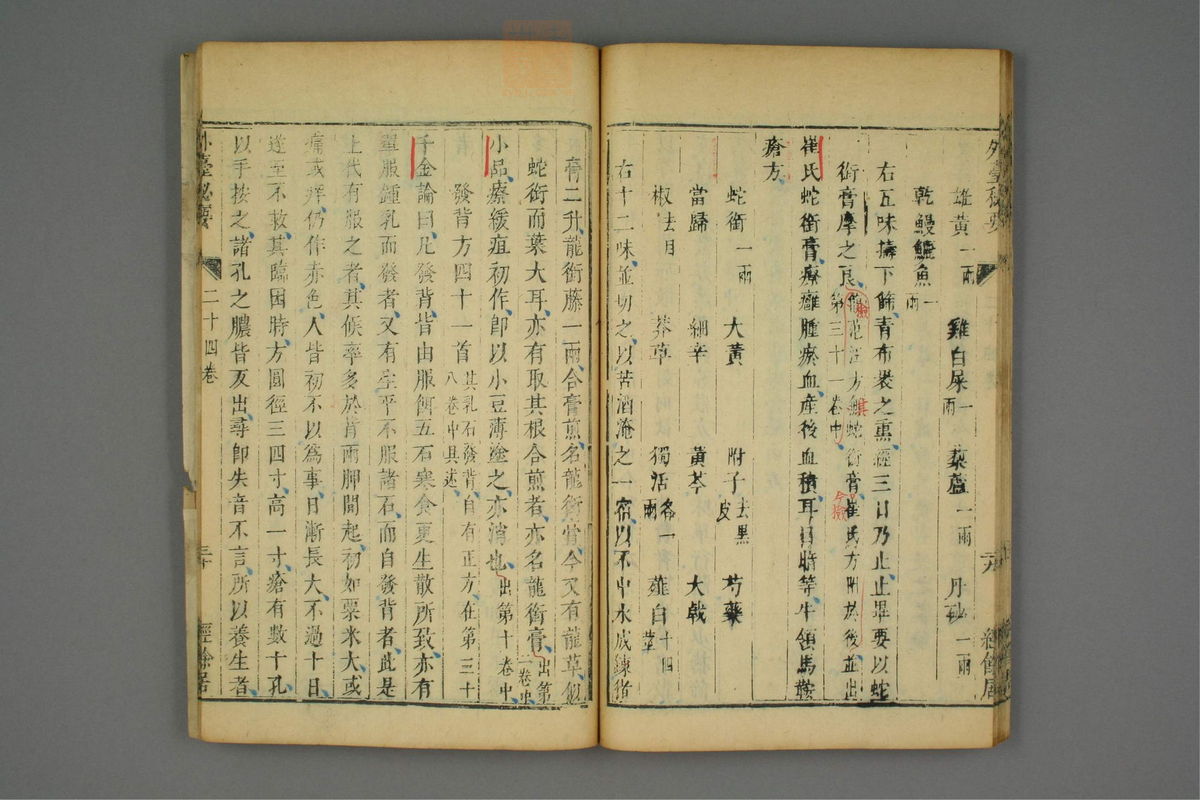 雄黃一兩 雞白屎一兩 藜蘆一兩 丹砂一兩
乾鰻鱺魚一兩
右五味擣下篩青布裹之熏經三日乃止止畢要以蛇
銜膏摩之良
第三十一卷中
蛇銜膏崔氏方附於後並出
崔氏蛇銜膏療癰腫瘀血產後血積耳目暗等牛領馬鞍
瘡方
蛇銜一兩 大黃 附子去黑皮 芍藥
當歸 細辛 黃芩 大戟
椒去目 莽草 獨活各一兩 薤白十四莖
右十二味並切之以苦酒淹之一宿以不中水成鍊猪
膏二升龍銜藤一兩合膏煎名龍銜膏今又有龍草似
蛇銜而葉大耳亦有取其根合煎者亦名龍銜膏出第
一卷中
小品療緩疽初作即以小豆薄塗之亦消也出第十卷中
發背方四十一首其乳石發背自有正方在第三十
八卷中具述
千金論曰凡發背皆由服餌五石寒食更生散所致亦有
單服鍾乳而發者又有生平不服諸石而自發背者此是
上代有服之者其候率多於背兩胛間起初如粟米大或
痛或痒仍作赤色人皆初不以為事日漸長大不過十日
遂至不救其臨困時方圓徑三四寸高一寸瘡有數十孔
以手按之諸孔之膿皆反出尋即失音不言所以養生者
外臺秘要
二十四卷
三十
經餘居